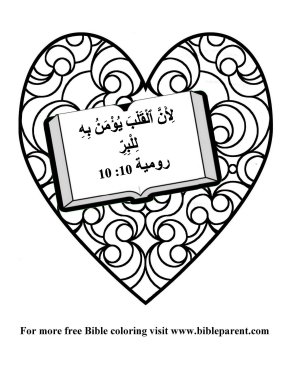 لِأَنَّ ٱلْقَلْبَ يُؤْمَنُ بِهِ
لِلْبِرِّ
رومية 10: 10
For more free Bible coloring visit www.bibleparent.com